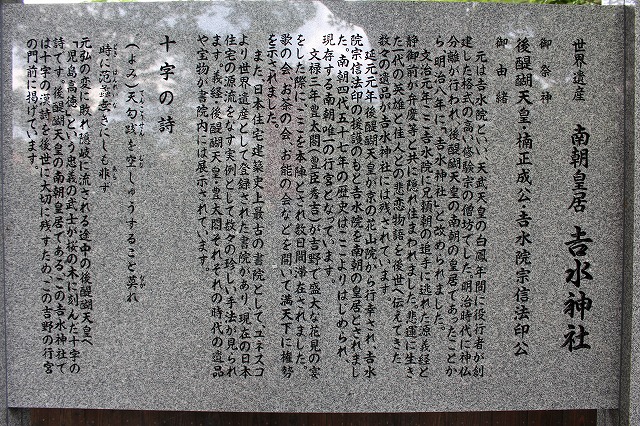 世界遺産 南朝皇居 𠮷水神社
御祭神
後醍醐天皇・楠正成公・𠮷水院宗信法印公
御由緒
元は𠮷水院といい、天武天皇の白鳳年間に役行者が創
建した格式の高い修験宗の僧坊でした。明治時代に神仏
分離が行われ、後醍醐天皇の南朝の皇居であったことか
ら、明治八年に「𠮷水神社」と改められました。
文治元年、ここ𠮷水院に兄頼朝の追手に逃れた源義経と
静御前が弁慶等と共に隠れ住まわれました。悲運に生き
た一代の英雄と佳人との悲恋物語を後世へ伝えてきた
数々の遺品が𠮷水神社には残されています。
延元元年後醍醐天皇が京の花山院から行幸され、𠮷水
院宗信法印の援護のもと𠮷水院を南朝の皇居とされまし
た。南朝四代五十七年の歴史はここよりはじめられ、
現存する南朝唯一の行宮となっています。
文禄三年豊太閤(豊臣秀吉)が吉野で盛大な花見の宴
をした際に、ここを本陣とされ数日間滞在されました。
歌の会、お茶の会、お能の会などを開いて満天下に権勢
を示されました。
また、日本住宅建築史上最古の書院として、ユネスコ
より世界遺産として登録された書院があり、現在の日本
住宅の源流をなす実例として数々の珍しい手法が見られ
ます。義経・後醍醐天皇・豊太閤それぞれの時代の遺品
や宝物が書院内には展示されています。
十字の詩
(よみ)天勾践を空しゅうすること莫れ
時に范蠡無きにしも非ず
元弘の変に敗れ隠岐に流される途中の後醍醐天皇へ
「児島高徳」という忠義の武士が桜の木に刻んだ十字の
詩です。後醍醐天皇の南朝皇居であるこの𠮷水神社で
は十字の漢詩を後世に大切に残すため、この吉野の行宮
の門前に掲げています。